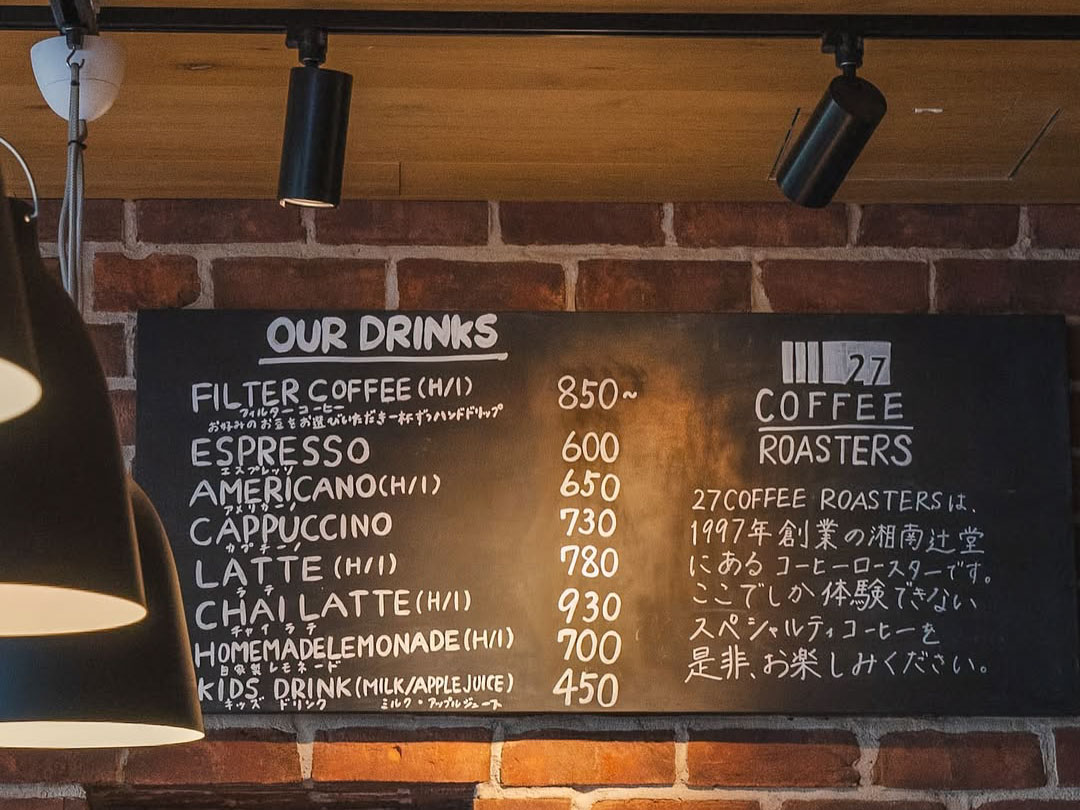 OUR DRINKS
FILTER COFFEE (H/I) 850~
フィルターコーヒー
お好みのお豆をお選びいただき一杯ずつハンドドリップ
ESPRESSO 600
エスプレッソ
AMERICANO (H/I) 650
アメリカーノ
CAPPUCCINO 730
カプチーノ
LATTE (H/I) 780
ラテ
CHAI LATTE (H/I) 930
チャイラテ
HOMEMADE LEMONADE (H/I) 700
自家製レモネード
KIDS DRINK (MILK/APPLE JUICE) 450
キッズ ドリンク ミルク・アップルジュース
27
COFFEE
ROASTERS
27COFFEE ROASTERSは、
1997年創業の湘南辻堂
にあるコーヒーロースターです。
ここでしか体験できない
スペシャルティコーヒーを
是非、お楽しみください。